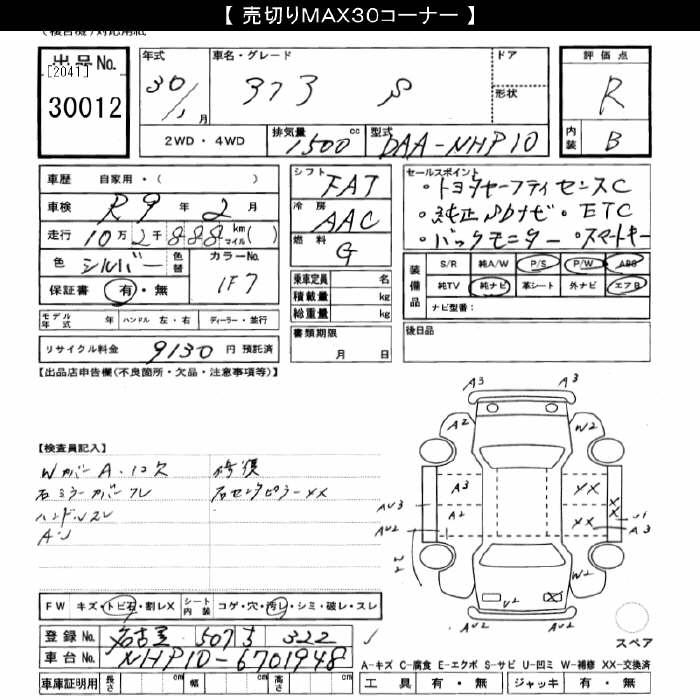 【 売切りMAX30コーナー 】
出品No. 年式 車名・グレード ドア 評価点
[2041] 30 373 S 形状 R
30012 月 内装 B
2WD ・ 4WD 排気量 1500 cc 型式 DAA-NHP10
車歴 自家用・( ) シフト FAT セールスポイント
・トヨタセーフティセンスC
車検 R 9 年 2 月 冷房 AAC ・純正SDナビ・ETC
走行 10万2千888 km マイル ( ) 燃料 G ・バックモニター・スマートキー
色 シルバー 色替 カラーNo. 1F7
装備品 S/R 純A/W P/S P/W ABS
保証書 有・無 乗車定員 名 純TV 純ナビ 革シート 外ナビ エアB
積載量 kg ナビ型番:
モデル年式 年 ハンドル 左・右 ディーラー・並行 総重量 kg
リサイクル料金 9130 円 預託済 書類期限 月 日 後日品
【出品店申告欄(不良箇所・欠品・注意事項等)】
A3 A3
A2 W2
【検査員記入】
Wカバー A・1コ欠 修復
右ミラーカバーワレ 右センタピラーXX
ハンドルスレ
A3 XX X
A2 XX X
AU3 AU2 A3
AU2 W2
U2 X
FW キズ・トビ石・割レX シート内装 コゲ・穴・汚レ・シミ・破レ・スレ
登録No. 名古屋 507 322
スペア
車台No. NHP10-6701948
A-キズ C-腐食 E-エクボ S-サビ U-凹ミ W-補修 XX-交換済
車庫証明用 長さ cm 幅 cm 高さ cm 工具 有・無 ジャッキ 有・無